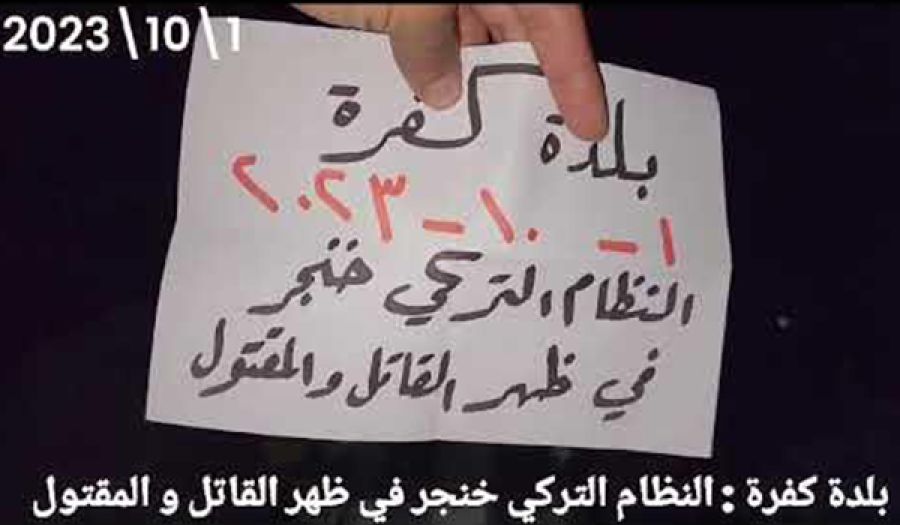 2023\10\1
بلدة كفرة
١ - ١٠ - ٢٠٢٣
النظام التركي خنجر
في ظهر القاتل والمقتول
بلدة كفرة : النظام التركي خنجر في ظهر القاتل و المقتول